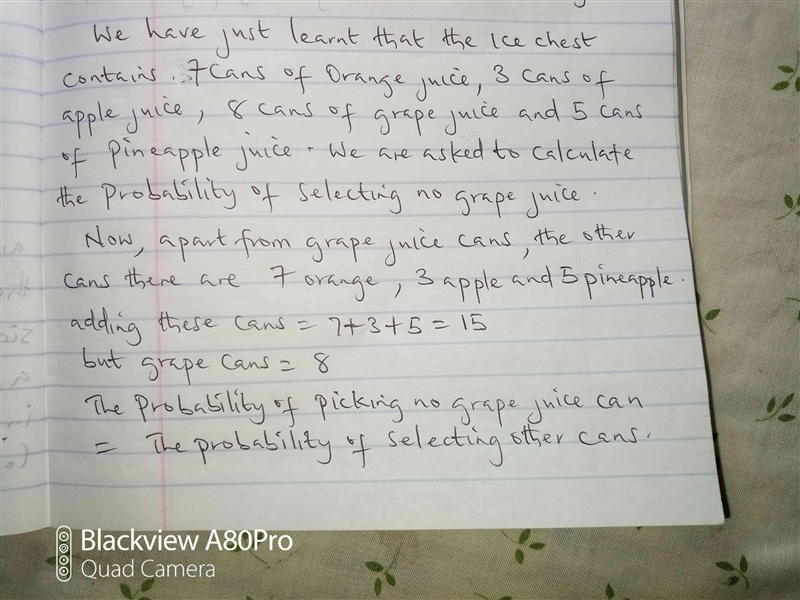 We have just learnt that the Ice chest
contains. 7 Cans of Orange juice, 3 cans of
apple juice, 8 cans of grape juice and 5 cans
of Pineapple juice. We are asked to calculate
the Probability of Selecting no grape juice.
Now, apart from grape juice cans, the other
cans there are 7 orange, 3 apple and 5 pineapple.
adding these cans = 7+3+5 = 15
but grape cans = 8
The Probability of picking no grape juice can
= The probability of selecting other cans.
Blackview A80Pro
Quad Camera